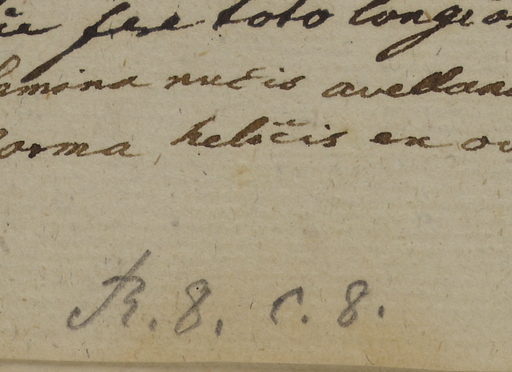 fere toto longior
lamina nucis avellana
forma helicis ex ov
R. 8. c. 8.